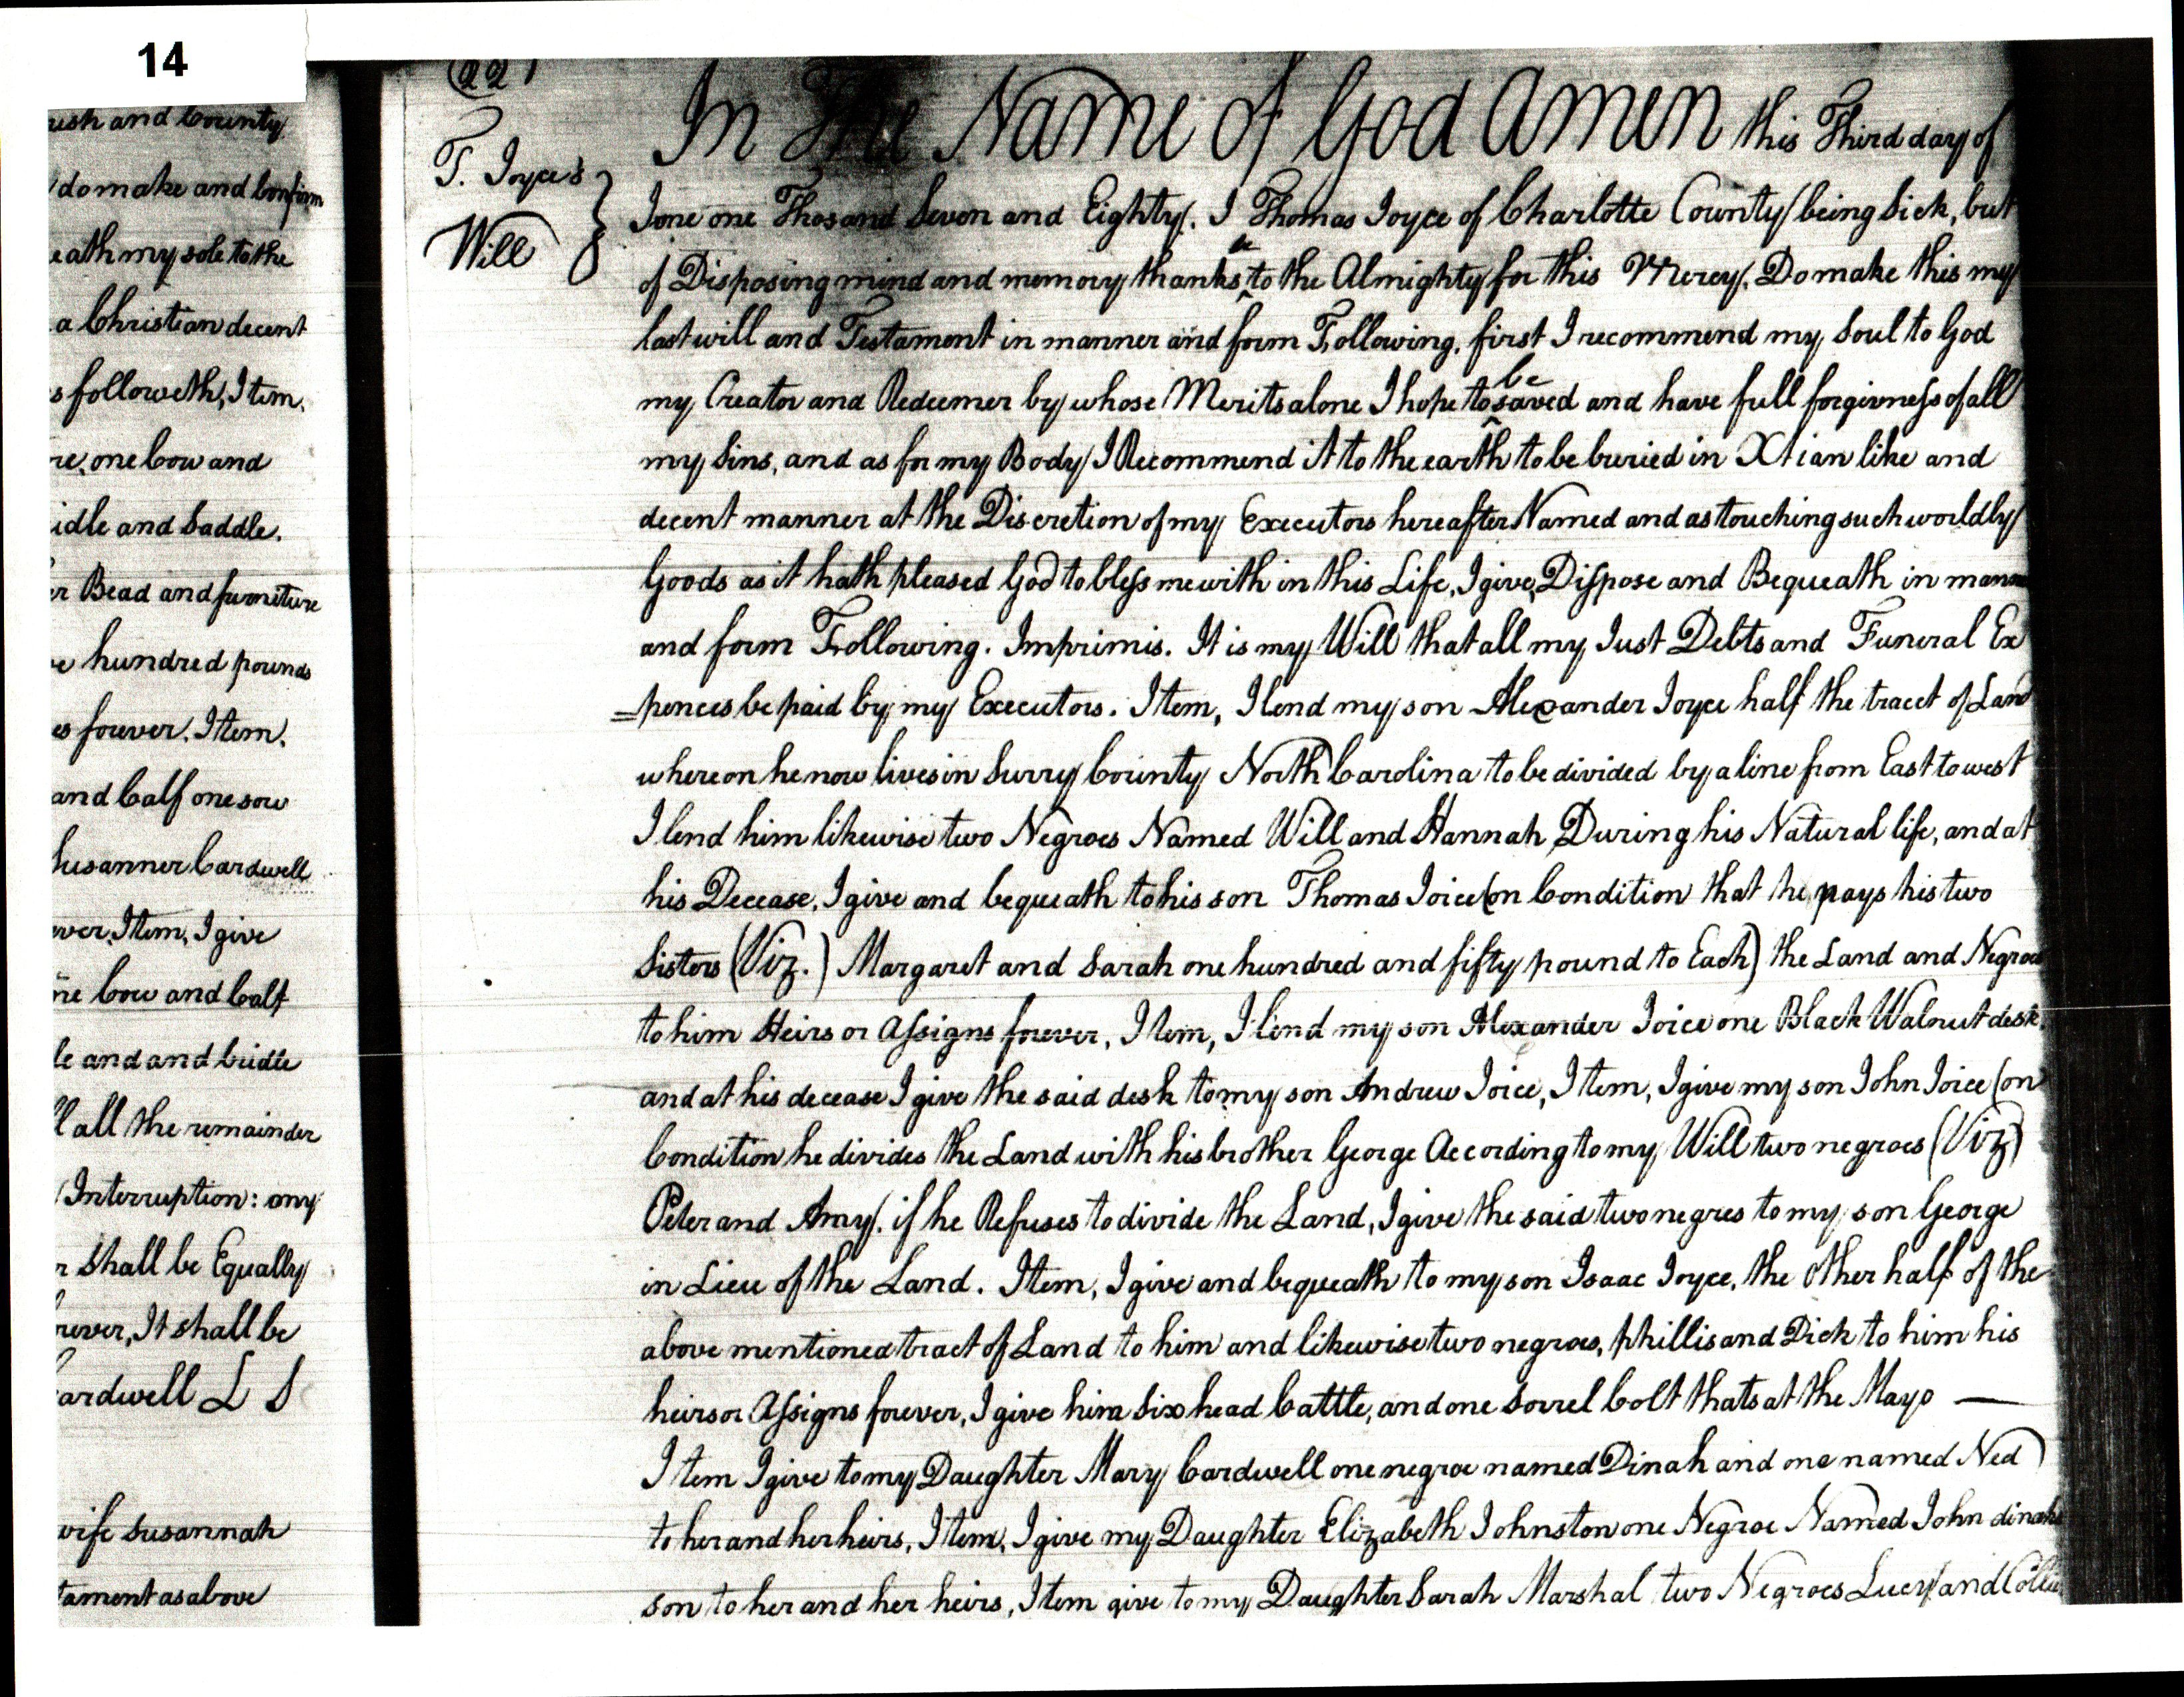 14
ush and County
do make and Confirm
eath my sole to the
a Christian decent
s followeth, Item.
re, one Cow and
idle and Saddle.
er Bead and furneture
e hundred pounds
es forever. Item.
and Calf one sow
Susanner Cardwell
ever. Item, I give
ne Cow and Calf
le and and bridle
ll all the remainder
Interruption: any
r shall be Equally
rever, It shall be
Cardwell L S
wife Susannah
tament as above
(22)
T. Joyce's
Will
In The Name of God Amen this Third day of
Jone one Thosand Seven and Eighty. I Thomas Joyce of Charlotte County being Sick, but
of Disposing mind and memory thanks be to the Almighty for this Mercy. Do make this my
last will and Testament in manner and form Following. first I recommend my Soul to God
my Creator and Redeemer by whose Merits alone I hope to be saved and have full forgivness of all
my Sins, and as for my Body I Recommend it to the earth to be buried in Xtian like and
decent manner at the Discretion of my Executors hereafter Named and as touching such worldly
Goods as it hath pleased God to bless me with in this Life, I give, Dispose and Bequeath in manner
and form Following. Imprimis. It is my Will that all my Just Debts and Funeral Ex
=pences be paid by my Executors. Item, I lend my son Alexander Joyce half the tracet of Land
whereon he now lives in Surry County North Carolina to be divided by a line from East to west
I lend him likewise two Negroes Named Will and Hannah During his Natural life, and at
his Decease, I give and bequeath to his son Thomas Joice (on Condition that he pays his two
Sisters (Viz.) Margaret and Sarah one hundred and fifty pound to Each) the Land and Negroes
to him Heirs or Assigns forever, Item, I lend my son Alexander Joice one Black Walnut desk
and at his decease I give the said desk to my son Andrew Joice, Item, I give my son John Joice (on
Condition he divides the Land with his brother George According to my Will two negroes (Viz)
Peter and Amy. if he Refuses to divide the Land, I give the said two negres to my son George
in Lieu of the Land. Item, I give and bequeath to my son Isaac Joyce, the other half of the
above mentioned tract of Land to him and likewise two negroes, phillis and Dick to him his
heirs or Assigns forever, I give him Six head Cattle, and one Sorrel Colt thats at the Mayo —
Item I give to my Daughter Mary Cardwell one negroe named Dinah and one named Ned
to her and her heirs, Item, I give my Daughter Elizabeth Johnston one Negroe Named John dinahs
son to her and her heirs, Item give to my Daughter Sarah Marshal two Negroes Lucy and